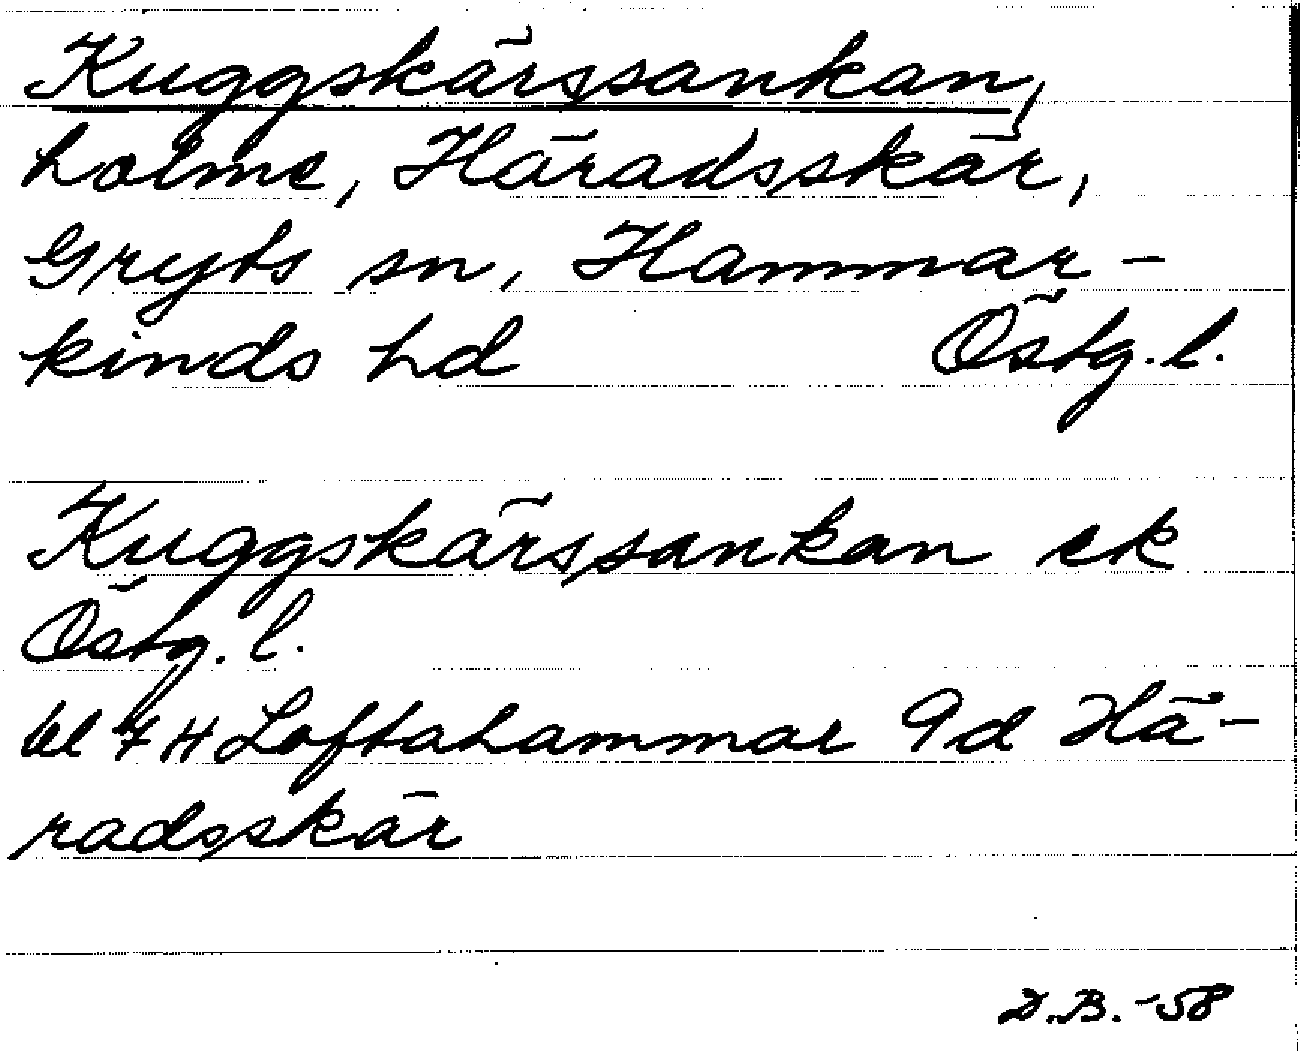 Kuggskärssankan,
holme, Häradsskär,
Gryts sn, Hammar-
kinds hd Östg. l.
Kuggskärssankan ek
Östg. l.
bl 7 H Loftahammar 9d Hä-
radsskär
D.B. -58